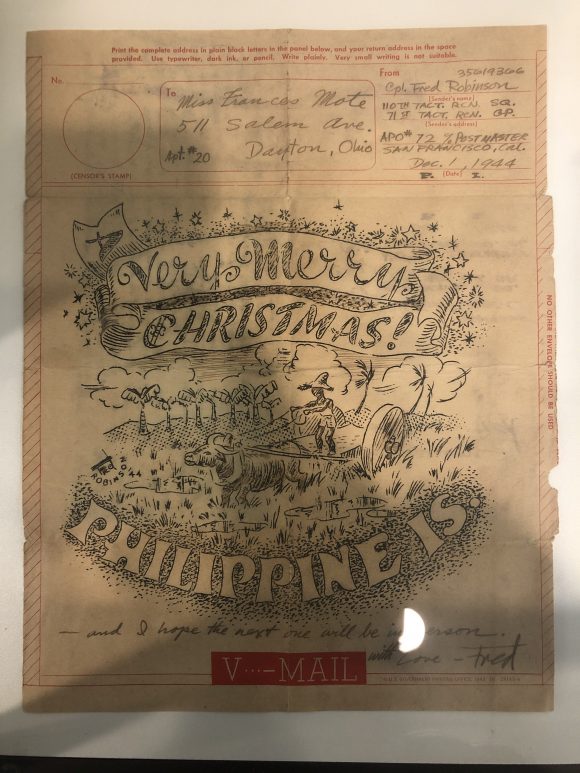 Print the complete address in plain black letters in the panel below, and your return address in the space
provided. Use typewriter, dark ink, or pencil. Write plainly. Very small writing is not suitable.
No.
(CENSOR'S STAMP)
To
Miss Frances Mote
511 Salem Ave.
Apt. #20 Dayton, Ohio
From
35619366
Cpl. Fred Robinson
(Sender's name)
110TH TACT. RCN. SQ.
71ST TACT. RCN. GP.
(Sender's address)
APO# 72 % POSTMASTER
SAN FRANCISCO, CAL.
Dec. 1, 1944
P. (Date) I.
A
Very Merry
CHRISTMAS!
FRED
ROBINSON
44
PHILIPPINE IS.
— and I hope the next one will be in person.
with Love - Fred
V···—MAIL
NO OTHER ENVELOPE SHOULD BE USED